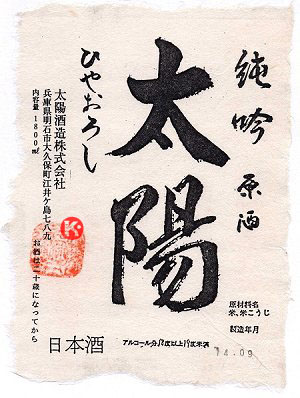 純吟 原酒
太陽
ひやおろし
太陽酒造株式会社
兵庫県明石市大久保町江井ケ島七八九
内容量 1800ml お酒は二十歳になってから
原材料名
米、米こうじ
製造年月
14.09
アルコール分18度以上19度未満
日本酒